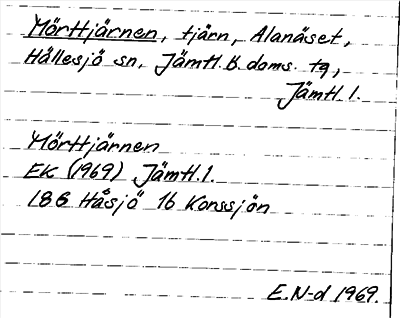 Mörttjärnen, tjärn, Alanäset,
Hällesjö sn, Jämtl. B. doms. tg,
Jämtl. l.
Mörttjärnen
EK (1969) Jämtl. l.
18G Håsjö 1b Konssjön
E.N-d 1969.